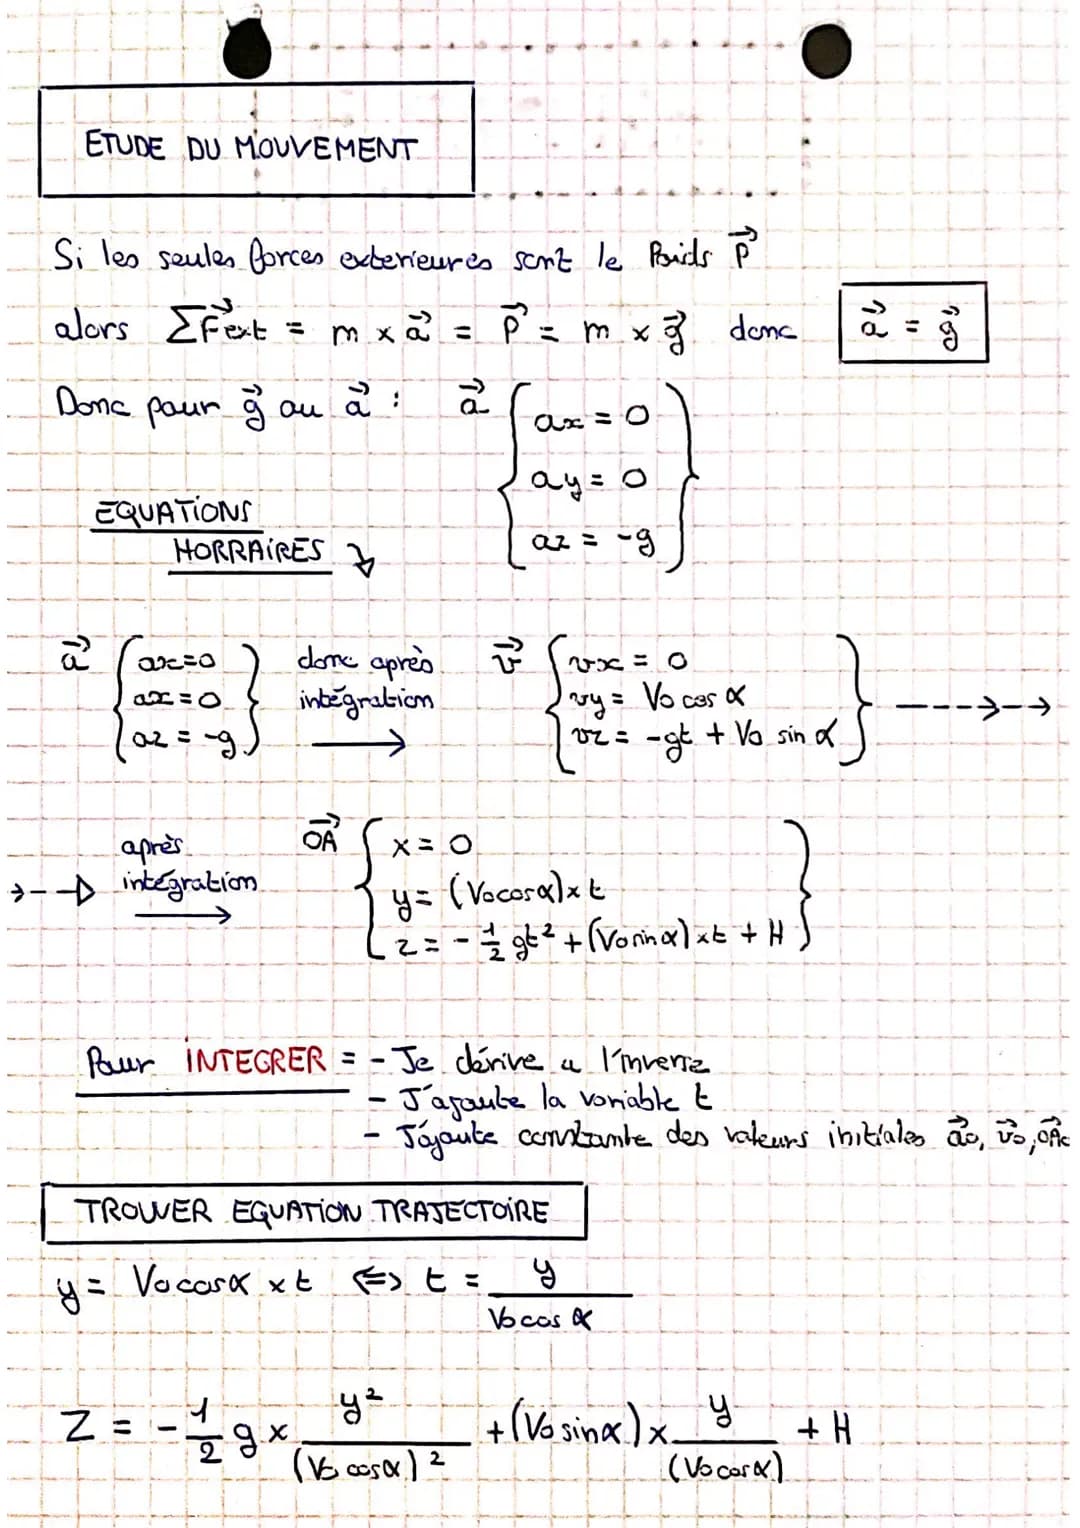 ETUDE DU MOUVEMENT
Si les seules forces exterieures sont le Poids P⃗
alors ΣF⃗ext = m x a⃗ = P⃗ = m x g⃗ donc a⃗ = g⃗
Donc pour g⃗ ou a⃗ : a⃗ { ax = 0
ay = 0
az = -g }
EQUATIONS
HORRAIRES ↴
a⃗ { ax=0 } donc après v⃗ { vx = 0
ax = 0 intégration vy = Vo cos α } ---->-->
az = -g → vz = -gt + Vo sin α
après OA⃗ { x = 0
>--▷ intégration y = (Vocosα)xt
→ z = - 1/2 gt² + (Vosinα)xt + H }
Pour INTEGRER = - Je dérive a l'inverse
- J'ajoute la variable t
- J'ajoute constante des valeurs initiales a⃗o, v⃗o, OA⃗o
TROUVER EQUATION TRAJECTOIRE
y = Vocosα x t ⇔ t = y / Vo cos α
Z = - 1/2 g x y² / (Vo cosα)² + (Vo sinα) x y / (Vo cosα) + H